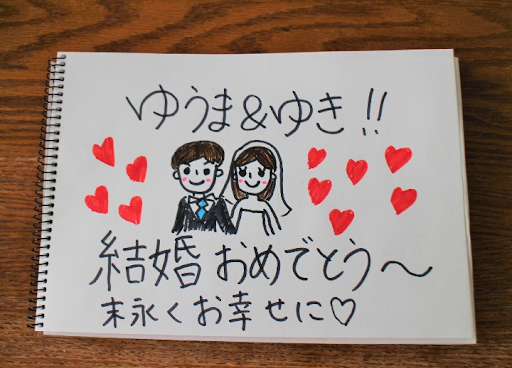 ゆうま&ゆき!!
結婚おめでとう〜
末永くお幸せに♡